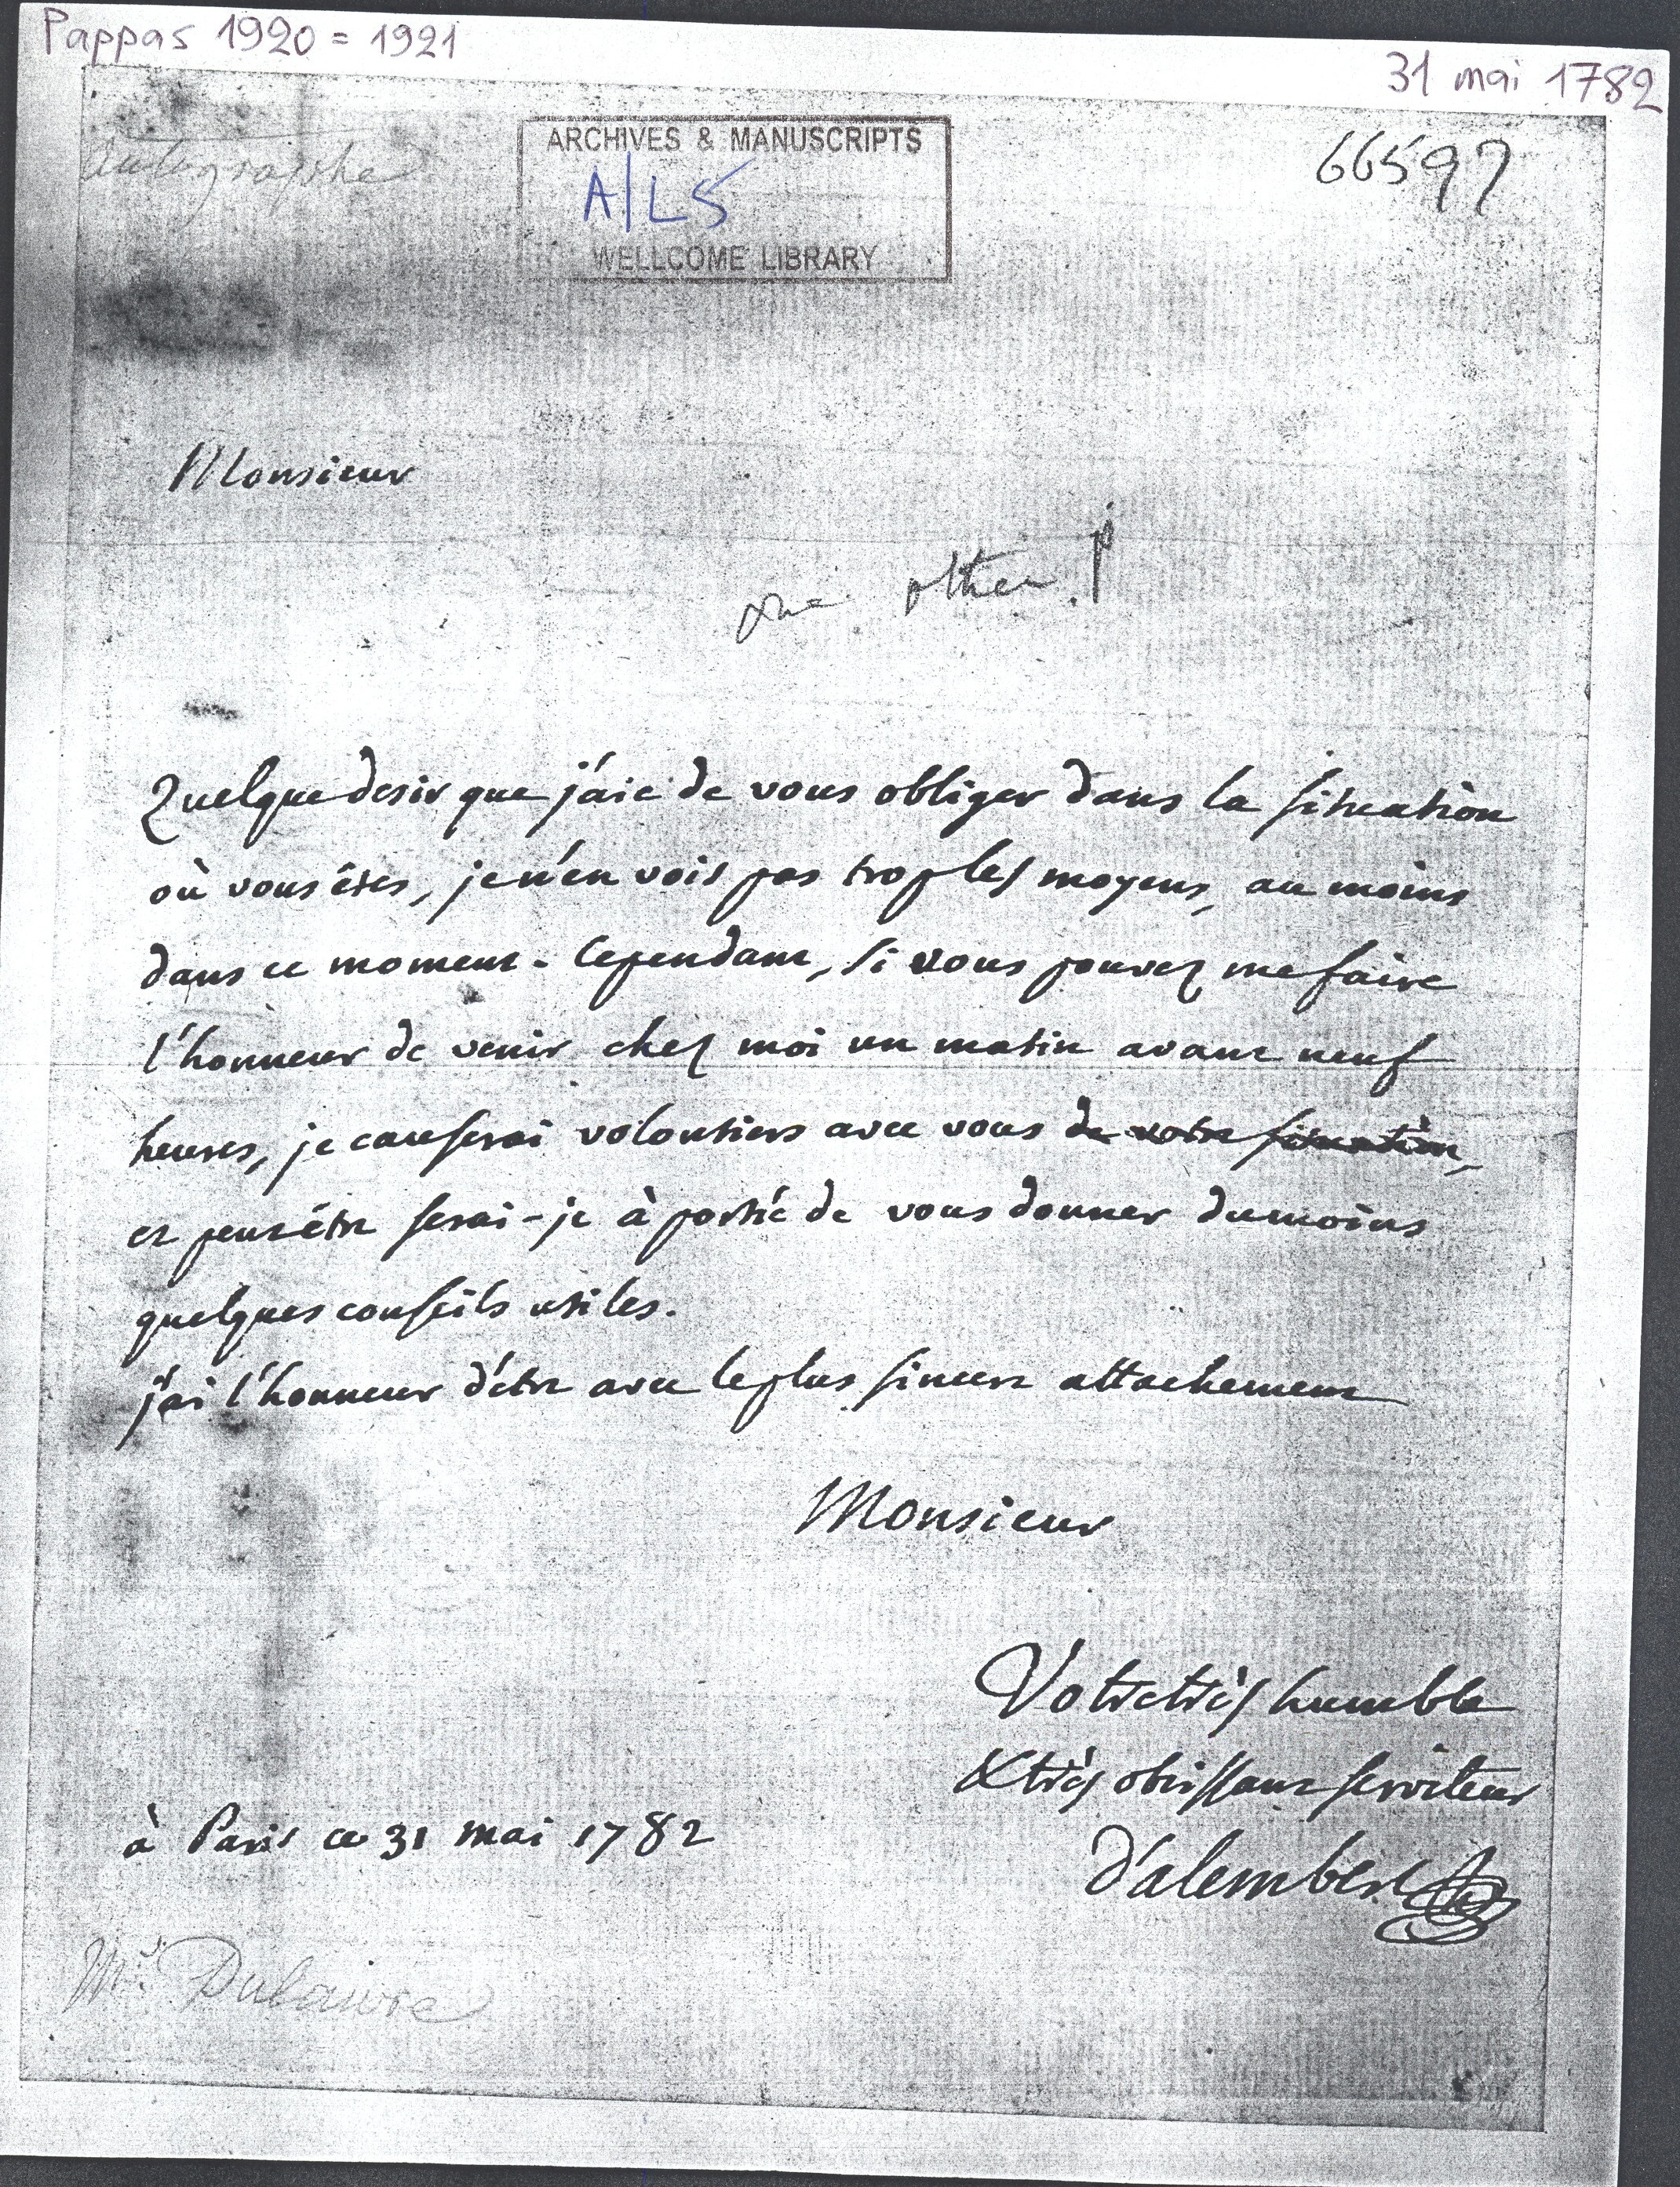 Pappas 1920 = 1921
31 mai 1782
autographe
ARCHIVES & MANUSCRIPTS
A/LS
WELLCOME LIBRARY
66597
Monsieur
other P
Quelque desir que j'aie de vous obliger dans la situation
où vous êtes, je n'en vois pas trop les moyens, au moins
dans ce moment. Cependant, si vous pouvez me faire
l'honneur de venir chez moi un matin avant neuf
heures, je causerai volontiers avec vous de votre situation,
et peut être serai-je à portée de vous donner du moins
quelques conseils utiles.
j'ai l'honneur d'être avec le plus sincere attachement
Monsieur
Votre très humble
& très obeissant serviteur
à Paris ce 31 mai 1782
d'alembert
Mr. Dulaure